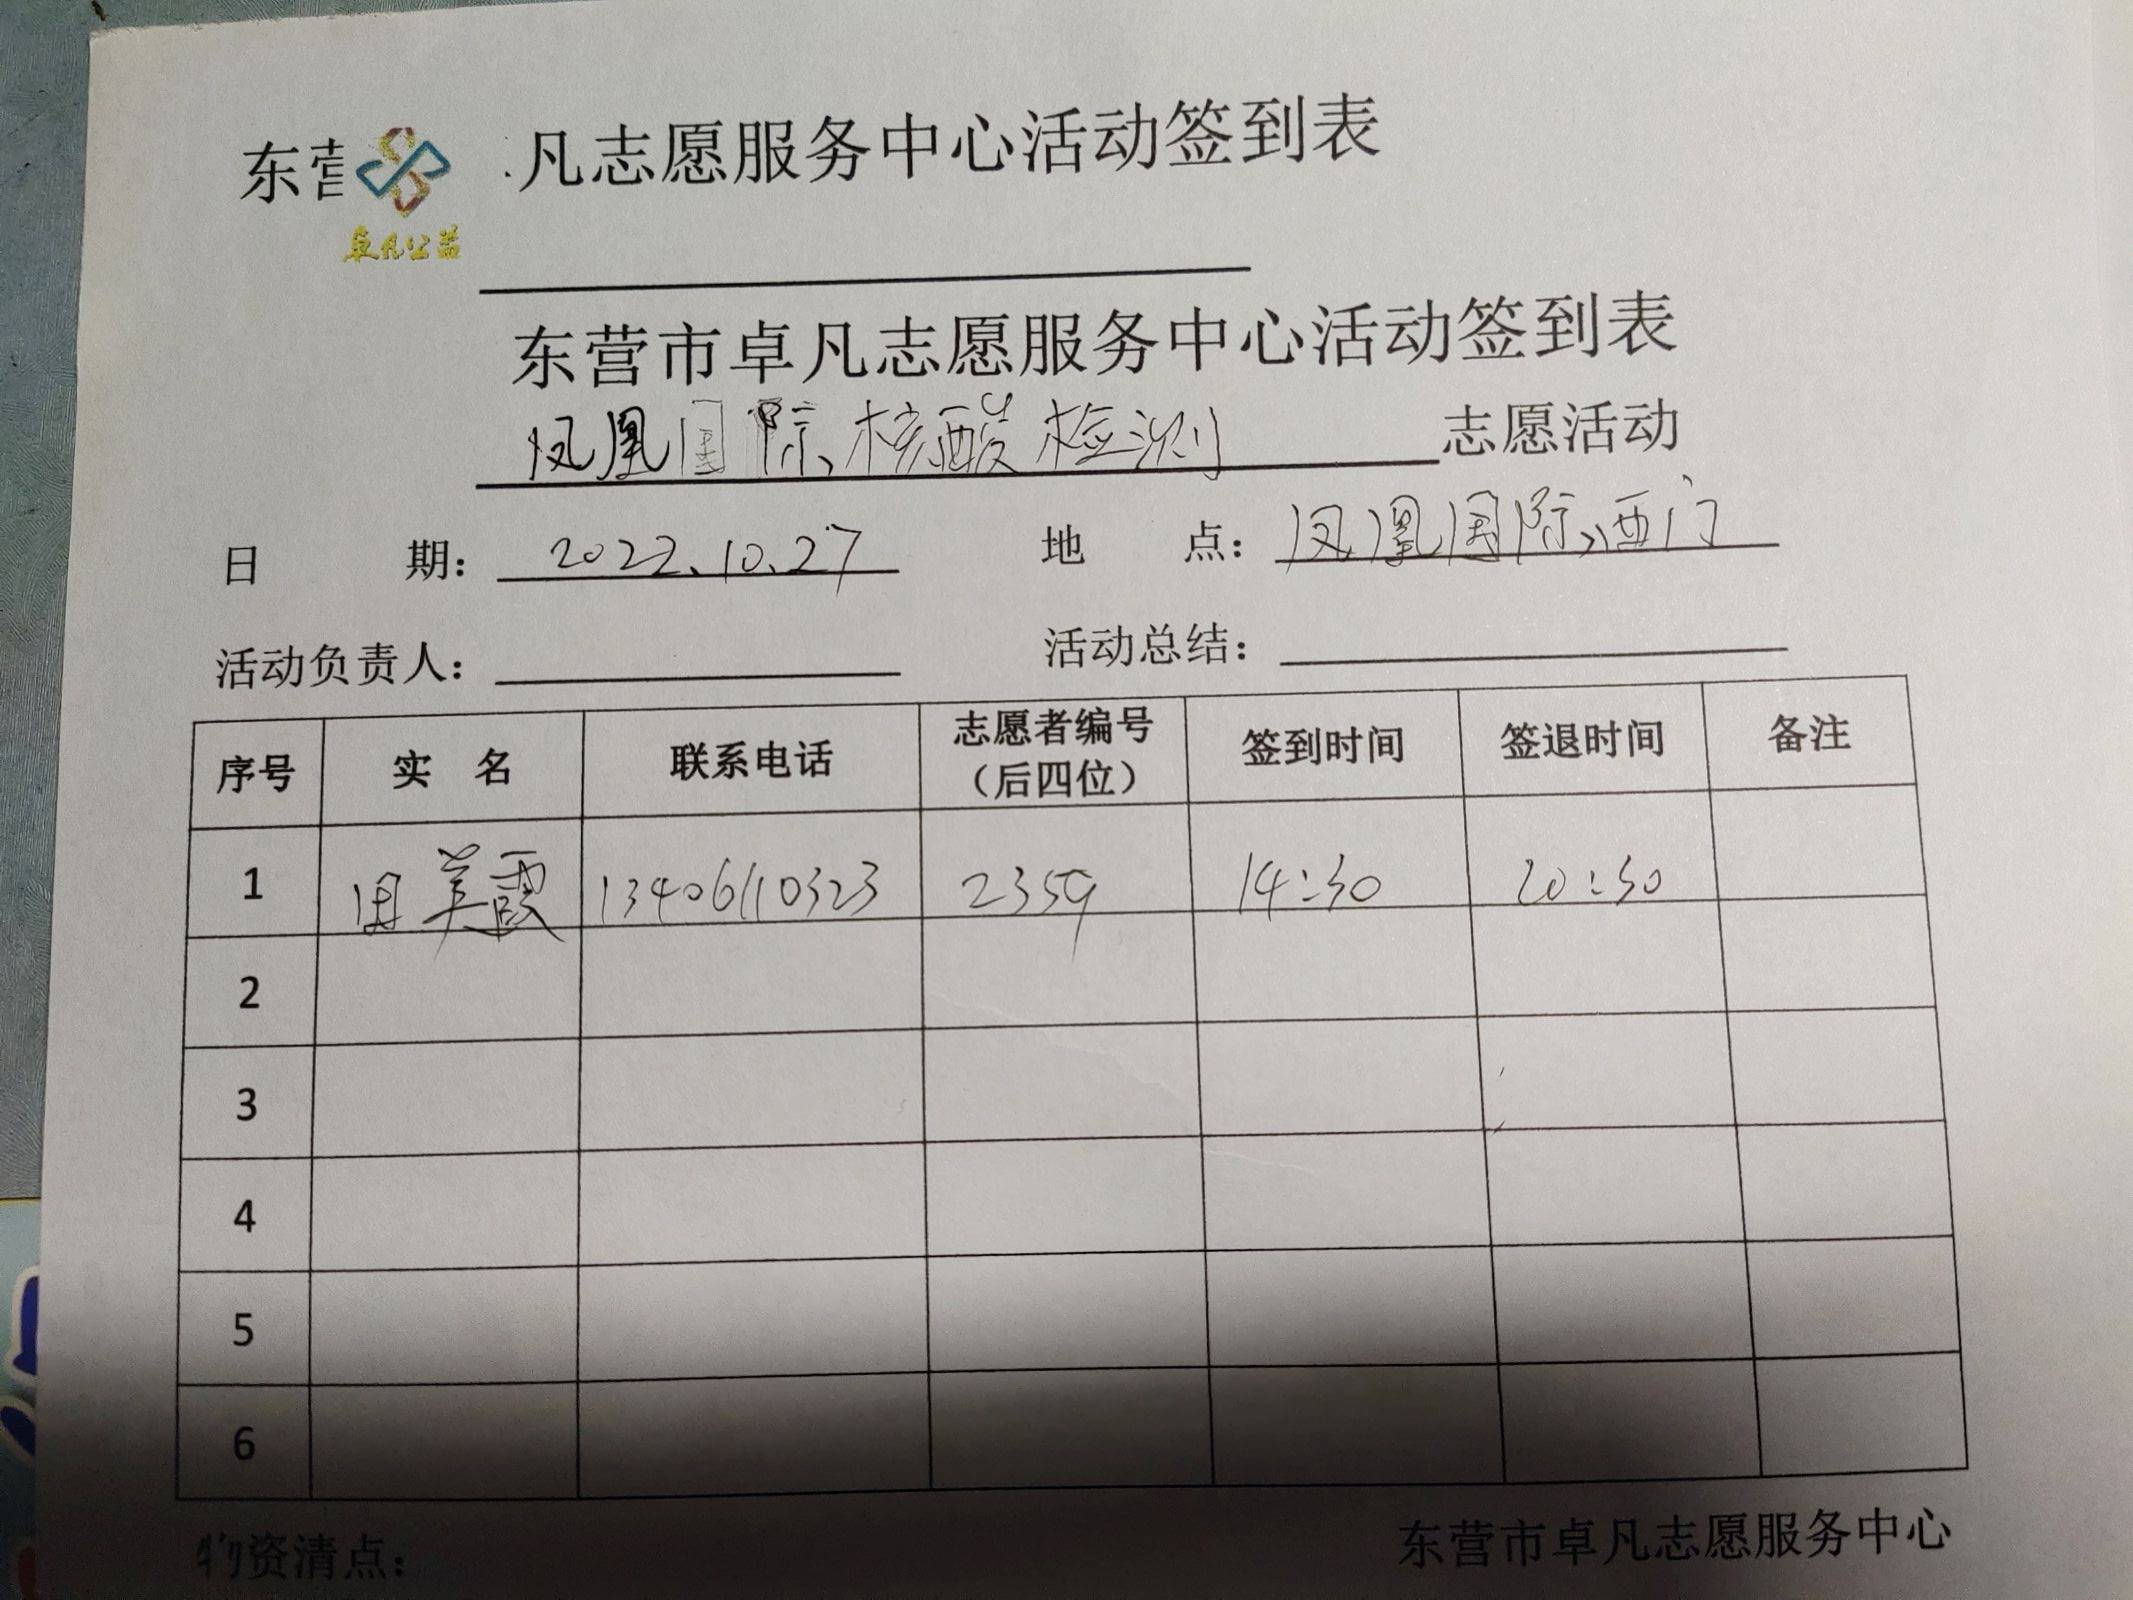 东营 凡志愿服务中心活动签到表
卓凡公益
东营市卓凡志愿服务中心活动签到表
凤凰国际核酸检测 志愿活动
日 期： 2022.10.27 地 点： 凤凰国际西门
活动负责人： 活动总结：
序号 实 名 联系电话 志愿者编号（后四位） 签到时间 签退时间 备注
1 田美霞 13406110323 2359 14:30 20:30
2
3
4
5
6
物资清点： 东营市卓凡志愿服务中心